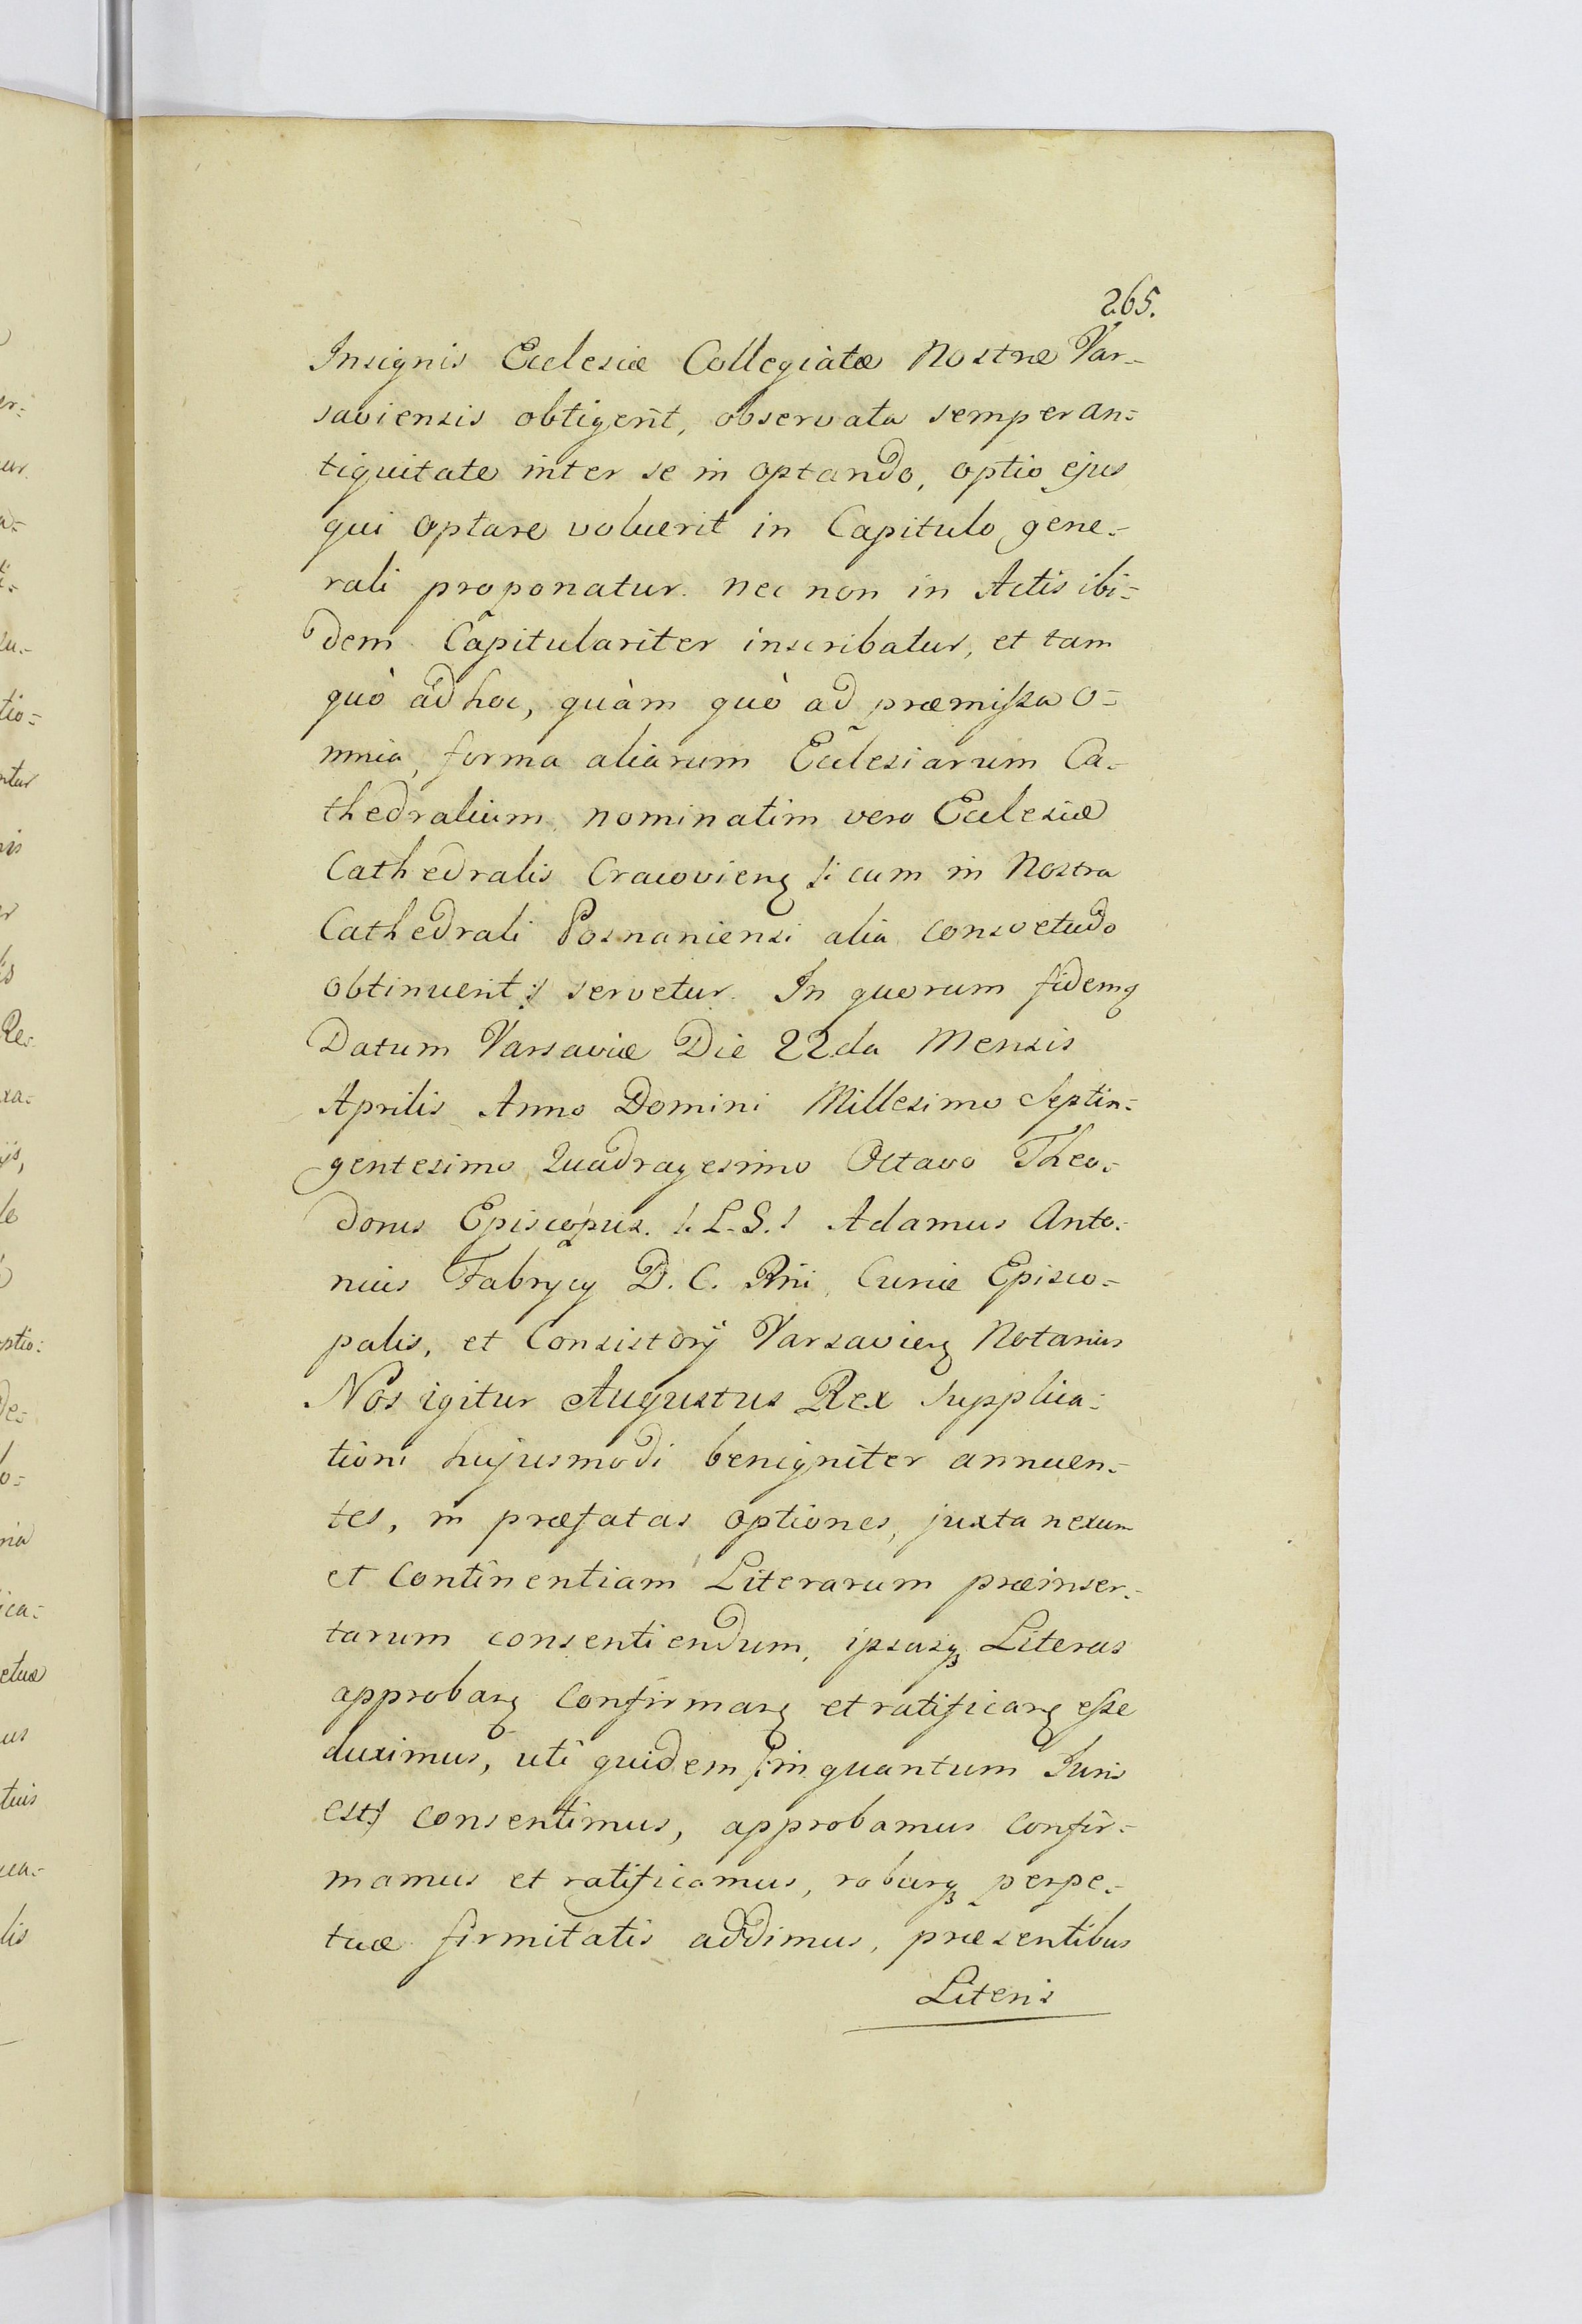 265.
Insignis Ecclesiæ Collegiatæ Nostræ Var-
saviensis obtigerit, observata semper an-
tiquitate inter se in optando, optio ejus
qui optare voluerit in Capitulo gene-
rali proponatur. nec non in Actis ibi-
dem Capitulariter inscribatur, et tam
quò ad hoc, quàm quò ad præmissa o-
mnia, forma aliarum Ecclesiarum Ca-
thedralium, nominatim vero Ecclesiæ
Cathedralis Cracovienȝ /: cum in Nostra
Cathedrali Posnaniensi alia consvetudo
obtinuerit :/ servetur. In quorum fidemȝ
Datum Varsaviæ Die 22da Mensis
Aprilis Anno Domini Millesimo Septin-
gentesimo Quadragesimo Octavo Theo-
dorus Episcopus. /: L.S. :/ Adamus Anto-
nius Fabrycy D. C. Rni, Curiæ Episco-
palis, et Consistorÿ Varsavienȝ Notarius
Nos igitur Augustus Rex supplica-
tioni hujusmodi benigniter annuen-
tes, in præfatas optiones, juxta nexum
et Continentiam Literarum præinser-
tarum consentiendum, ipsasqȝ Literas
approbanȝ Confirmanȝ et ratificanȝ esse
duximus, uti quidem /: in quantum Juris
est :/ consentimus, approbamus Confir-
mamus et ratificamus, roburqȝ perpe-
tuæ firmitatis addimus, præsentibus
Literis